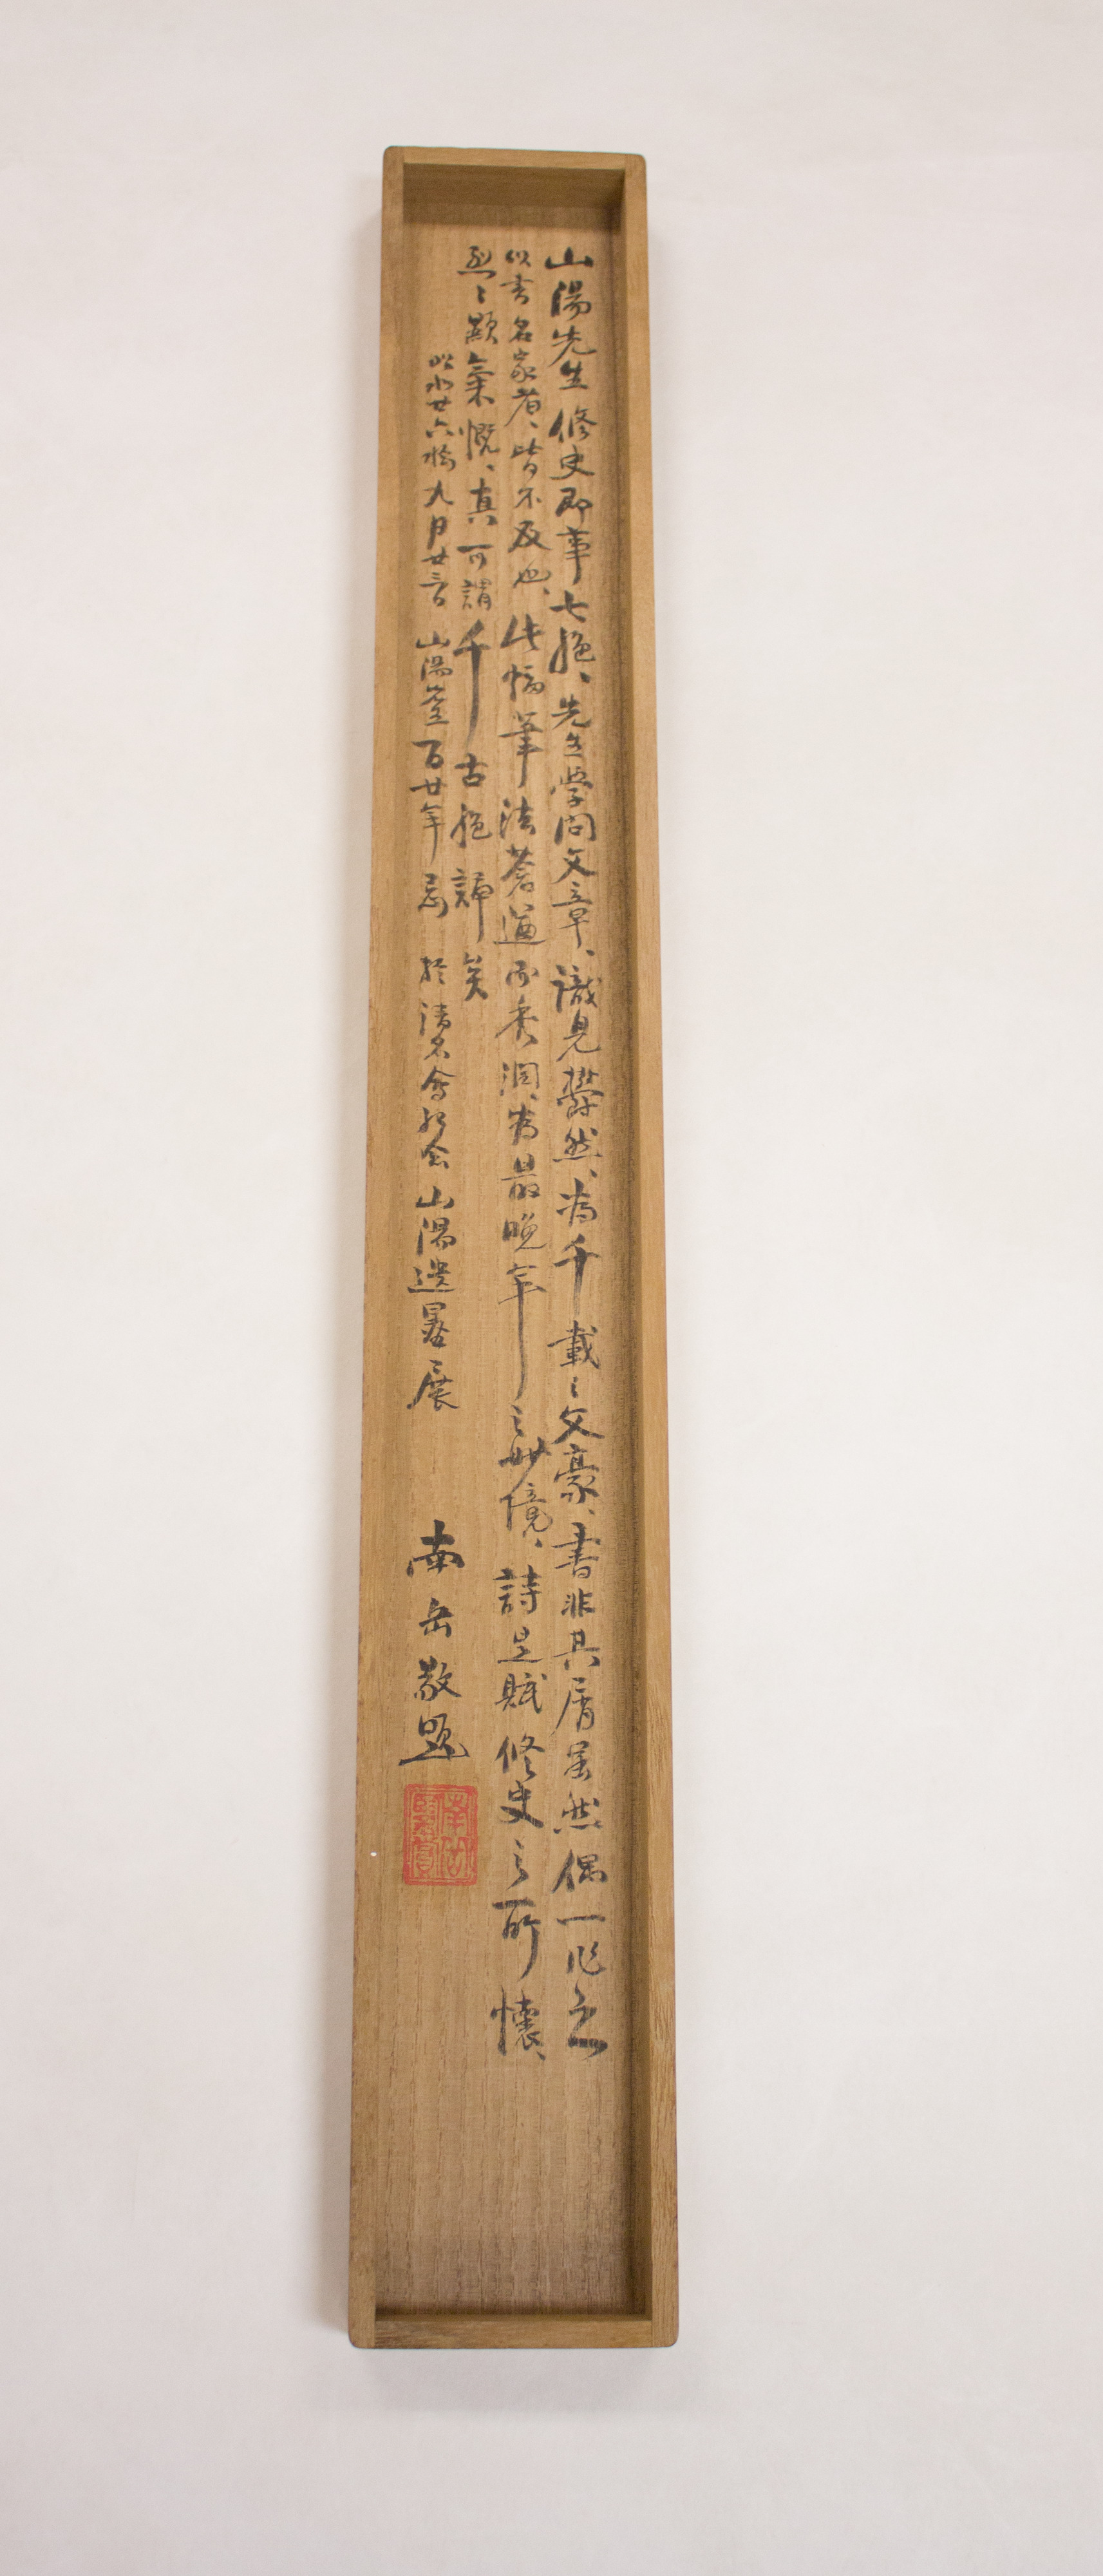 山陽先生修史即事七絶、先生学問文章、識見欝然、為千載之文豪、書非其屑虽然偶一作之
以書名家者、皆不及也、此幅筆法蒼遒而秀潤、為最晩年之妙境、詩是賦修史之所懐、
烈々顯氣慨、真可謂千古絶諦矣
昭和廿六 九月廿三日 山陽 百廿年忌 於清 会 山陽遺墨展
南岳敬題